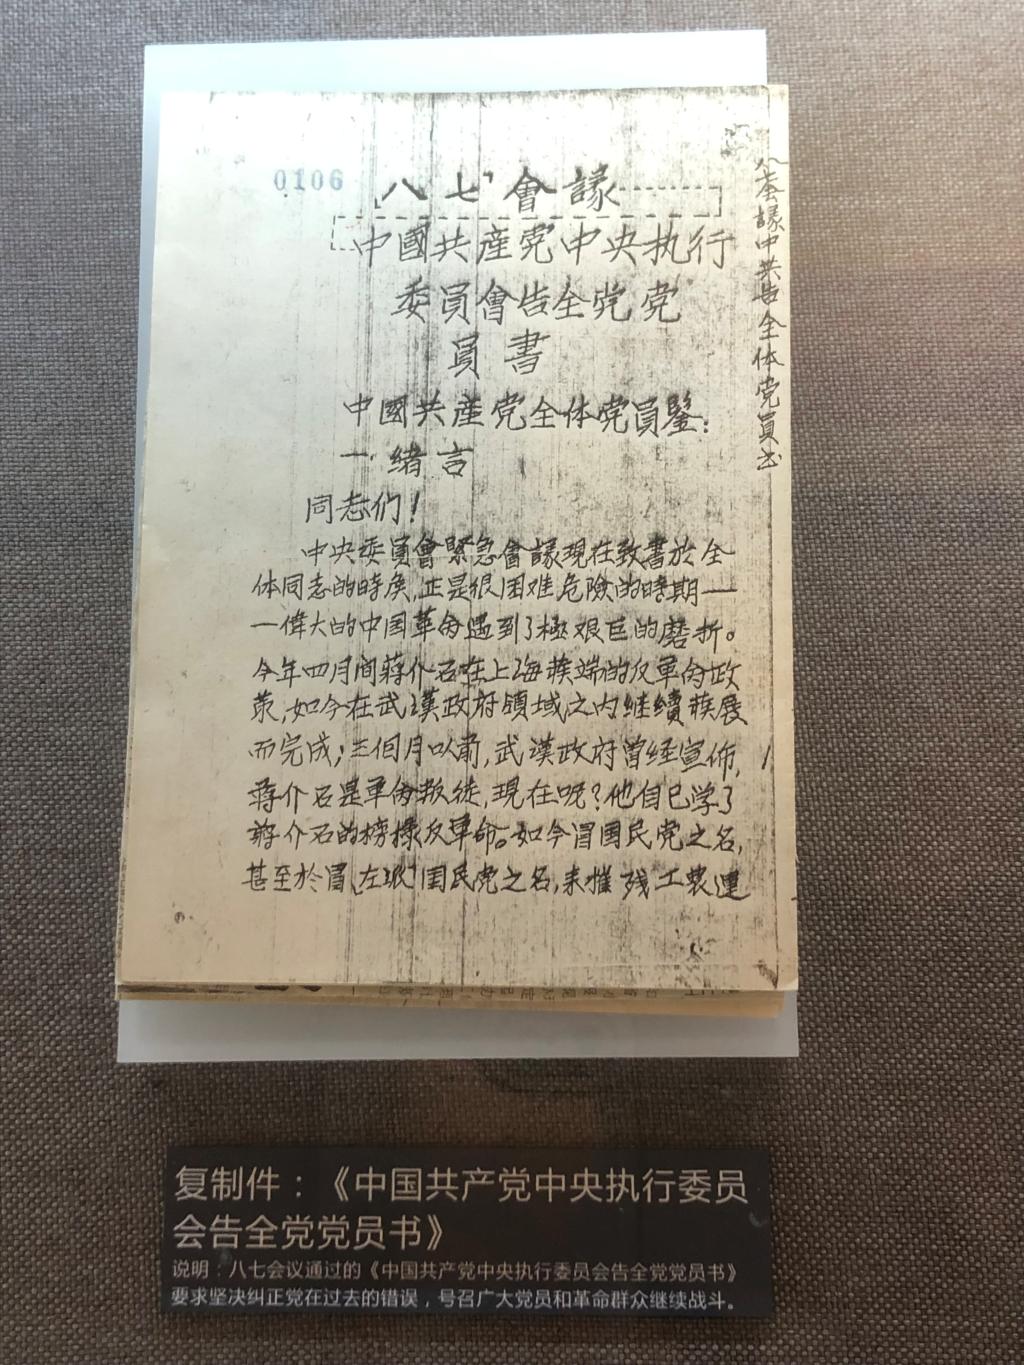 0106
八七會議
中國共産党中央执行
委員會告全党党
員書
中國共産党全体党員鑒：
一 緒言
同志们！
中央委員會緊急會議現在致書於全
体同志的時候，正是很困难危險的時期—
一偉大的中国革命遇到了極艰巨的磨折。
今年四月間蔣介石在上海發端的反革命政
策，如今在武漢政府領域之内继續發展
而完成；三個月以前，武漢政府曾经宣佈，
蔣介石是革命叛徒，現在呢？他自己学了
蔣介石的榜様反革命。如今冒国民党之名，
甚至於冒「左派」国民党之名，来摧残工农運
八七會議中共告全体党員书
复制件：《中国共产党中央执行委员
会告全党党员书》
说明：八七会议通过的《中国共产党中央执行委员会告全党党员书》
要求坚决纠正党在过去的错误，号召广大党员和革命群众继续战斗。